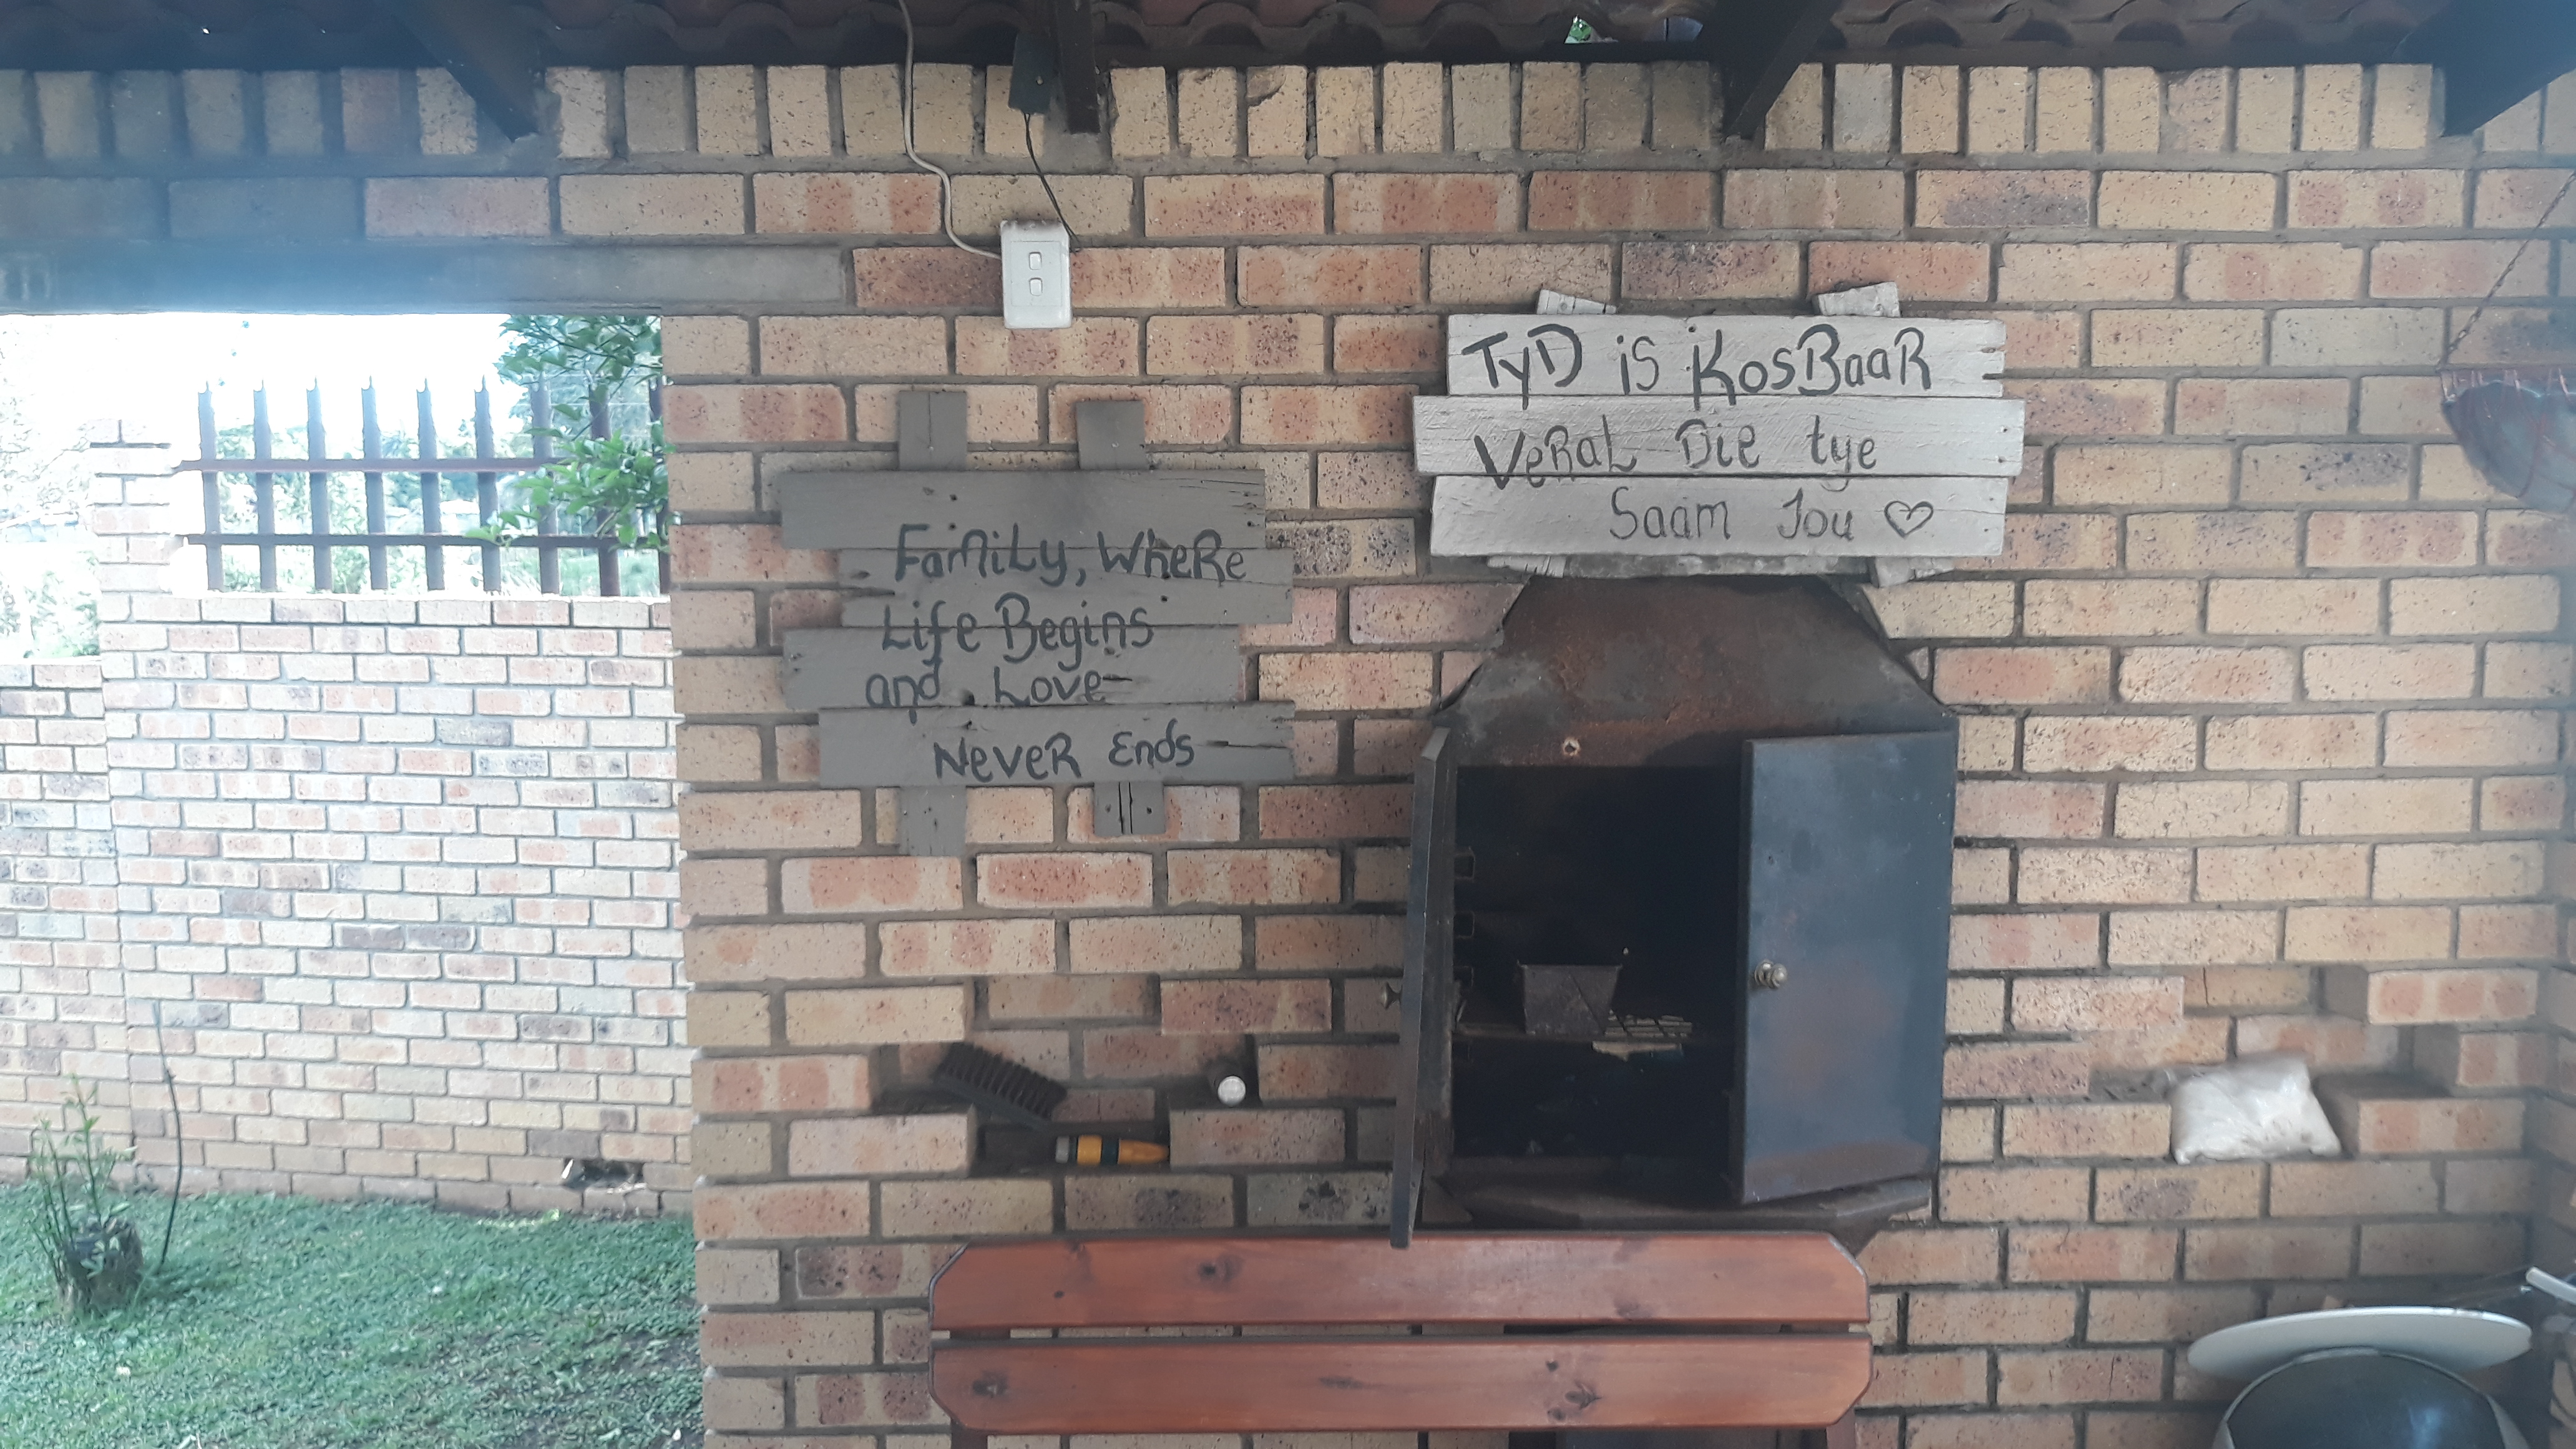 Family, Where
Life Begins
and Love
Never Ends
TyD is KosBaaR
VeRaL Die tye
Saam Jou ♡